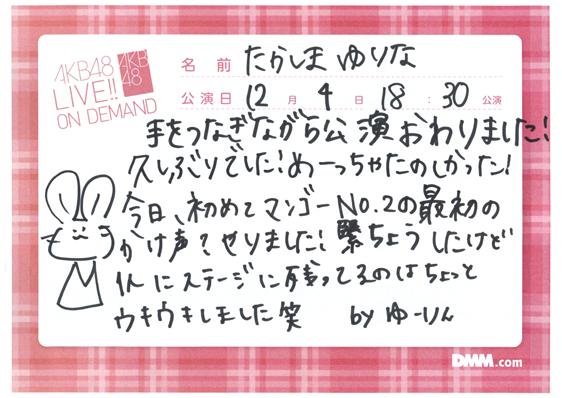 AKB48
LIVE!!
ON DEMAND
AKB
48
名前 たかしま ゆりな
公演日 12月4日 18:30公演
手をつなぎながら公演おわりました!
久しぶりでした!めーっちゃたのしかった!
今日、初めてマンゴーNO.2の最初の
かけ声?やりました!緊ちょうしたけど
1人にステージに残ってるのはちょっと
ウキウキしました笑 by ゆーりん
DMM.com